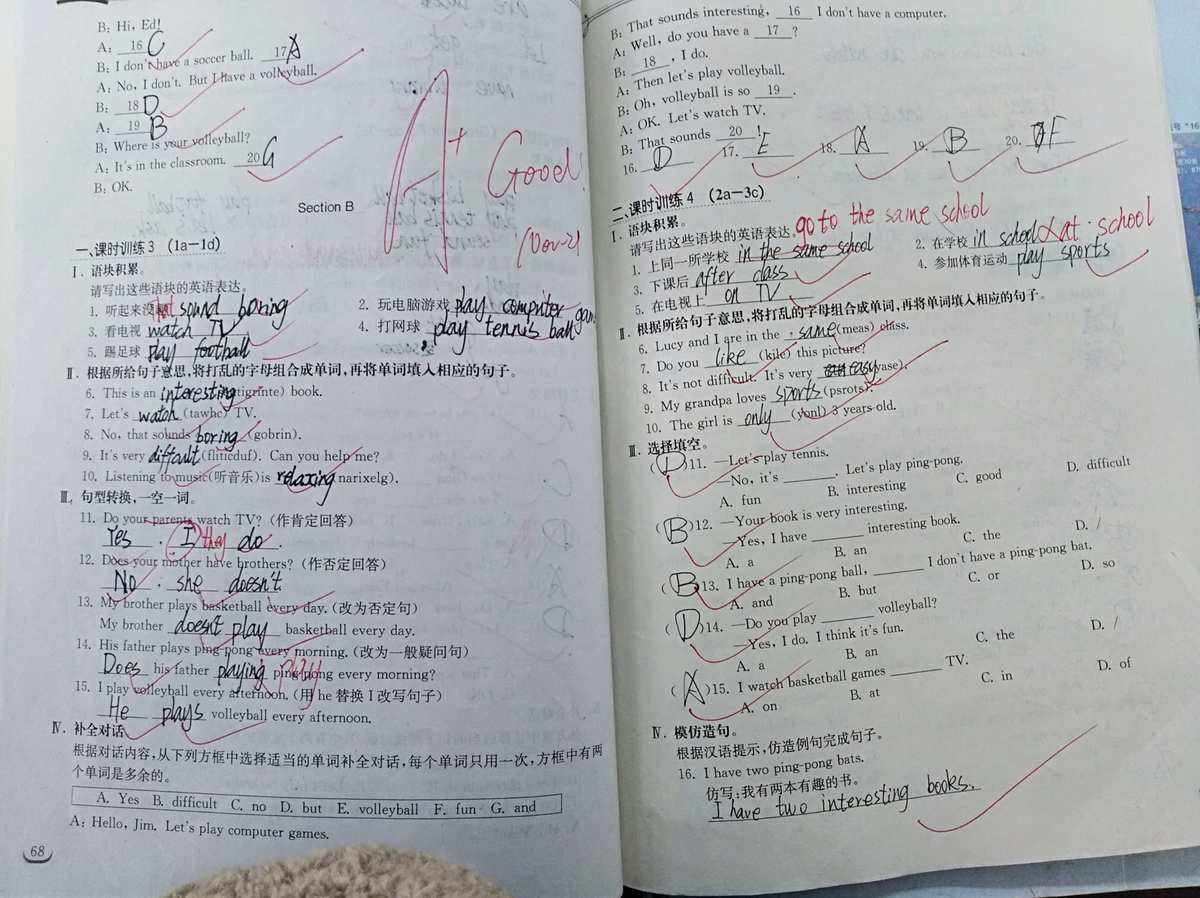 B: Hi, Ed!
A: 16 C
B: I don't have a soccer ball. 17 A
A: No, I don't. But I have a volleyball.
B: 18 D
A: 19 B
B: Where is your volleyball?
A: It's in the classroom. 20 G
B: OK.
A+ Good!
Section B
一、课时训练3 (1a—1d)
Ⅰ. 语块积累。
请写出这些语块的英语表达。
1. 听起来没趣 that sound boring
2. 玩电脑游戏 play computer game
3. 看电视 watch TV
4. 打网球 play tennis ball
5. 踢足球 play football
Ⅱ. 根据所给句子意思,将打乱的字母组合成单词,再将单词填入相应的句子。
6. This is an interesting (tigrinte) book.
7. Let's watch (tawhc) TV.
8. No, that sounds boring (gobrin).
9. It's very difficult (fliticduf). Can you help me?
10. Listening to music(听音乐)is relaxing narixelg).
Ⅲ. 句型转换,一空一词。
11. Do your parents watch TV? (作肯定回答)
Yes , I they do .
12. Does your mother have brothers? (作否定回答)
No , she doesn't.
13. My brother plays basketball every day. (改为否定句)
My brother doesn't play basketball every day.
14. His father plays ping-pong every morning. (改为一般疑问句)
Does his father playing play ping-pong every morning?
15. I play volleyball every afternoon. (用 he 替换 I 改写句子)
He plays volleyball every afternoon.
Ⅳ. 补全对话
根据对话内容,从下列方框中选择适当的单词补全对话,每个单词只用一次,方框中有两
个单词是多余的。
A. Yes B. difficult C. no D. but E. volleyball F. fun G. and
A: Hello, Jim. Let's play computer games.
68
B: That sounds interesting, 16 I don't have a computer.
A: Well, do you have a 17 ?
B: 18 , I do.
A: Then let's play volleyball.
B: Oh, volleyball is so 19 .
A: OK. Let's watch TV.
B: That sounds 20 !
16. D 17. E 18. A 19. B 20. F
二、课时训练4 (2a—3c)
Ⅰ. 语块积累。
请写出这些语块的英语表达。 go to the same school
1. 上同一所学校 in the same school
2. 在学校 in school at school
3. 下课后 after class
4. 参加体育运动 play sports
5. 在电视上 on TV
Ⅱ. 根据所给句子意思,将打乱的字母组合成单词,再将单词填入相应的句子。
6. Lucy and I are in the same (meas) class.
7. Do you like (kile) this picture?
8. It's not difficult. It's very easy (yase).
9. My grandpa loves sports (psrots).
10. The girl is only (yonl) 3 years old.
Ⅲ. 选择填空。
( D )11. —Let's play tennis.
—No, it's ______. Let's play ping-pong.
A. fun B. interesting C. good D. difficult
( B )12. —Your book is very interesting.
—Yes, I have ______ interesting book.
A. a B. an C. the D. /
( B )13. I have a ping-pong ball, ______ I don't have a ping-pong bat.
A. and B. but C. or D. so
( D )14. —Do you play ______ volleyball?
—Yes, I do. I think it's fun.
A. a B. an C. the D. /
( A )15. I watch basketball games ______ TV.
A. on B. at C. in D. of
Ⅳ. 模仿造句。
根据汉语提示,仿造例句完成句子。
16. I have two ping-pong bats.
仿写:我有两本有趣的书。
I have two interesting books.